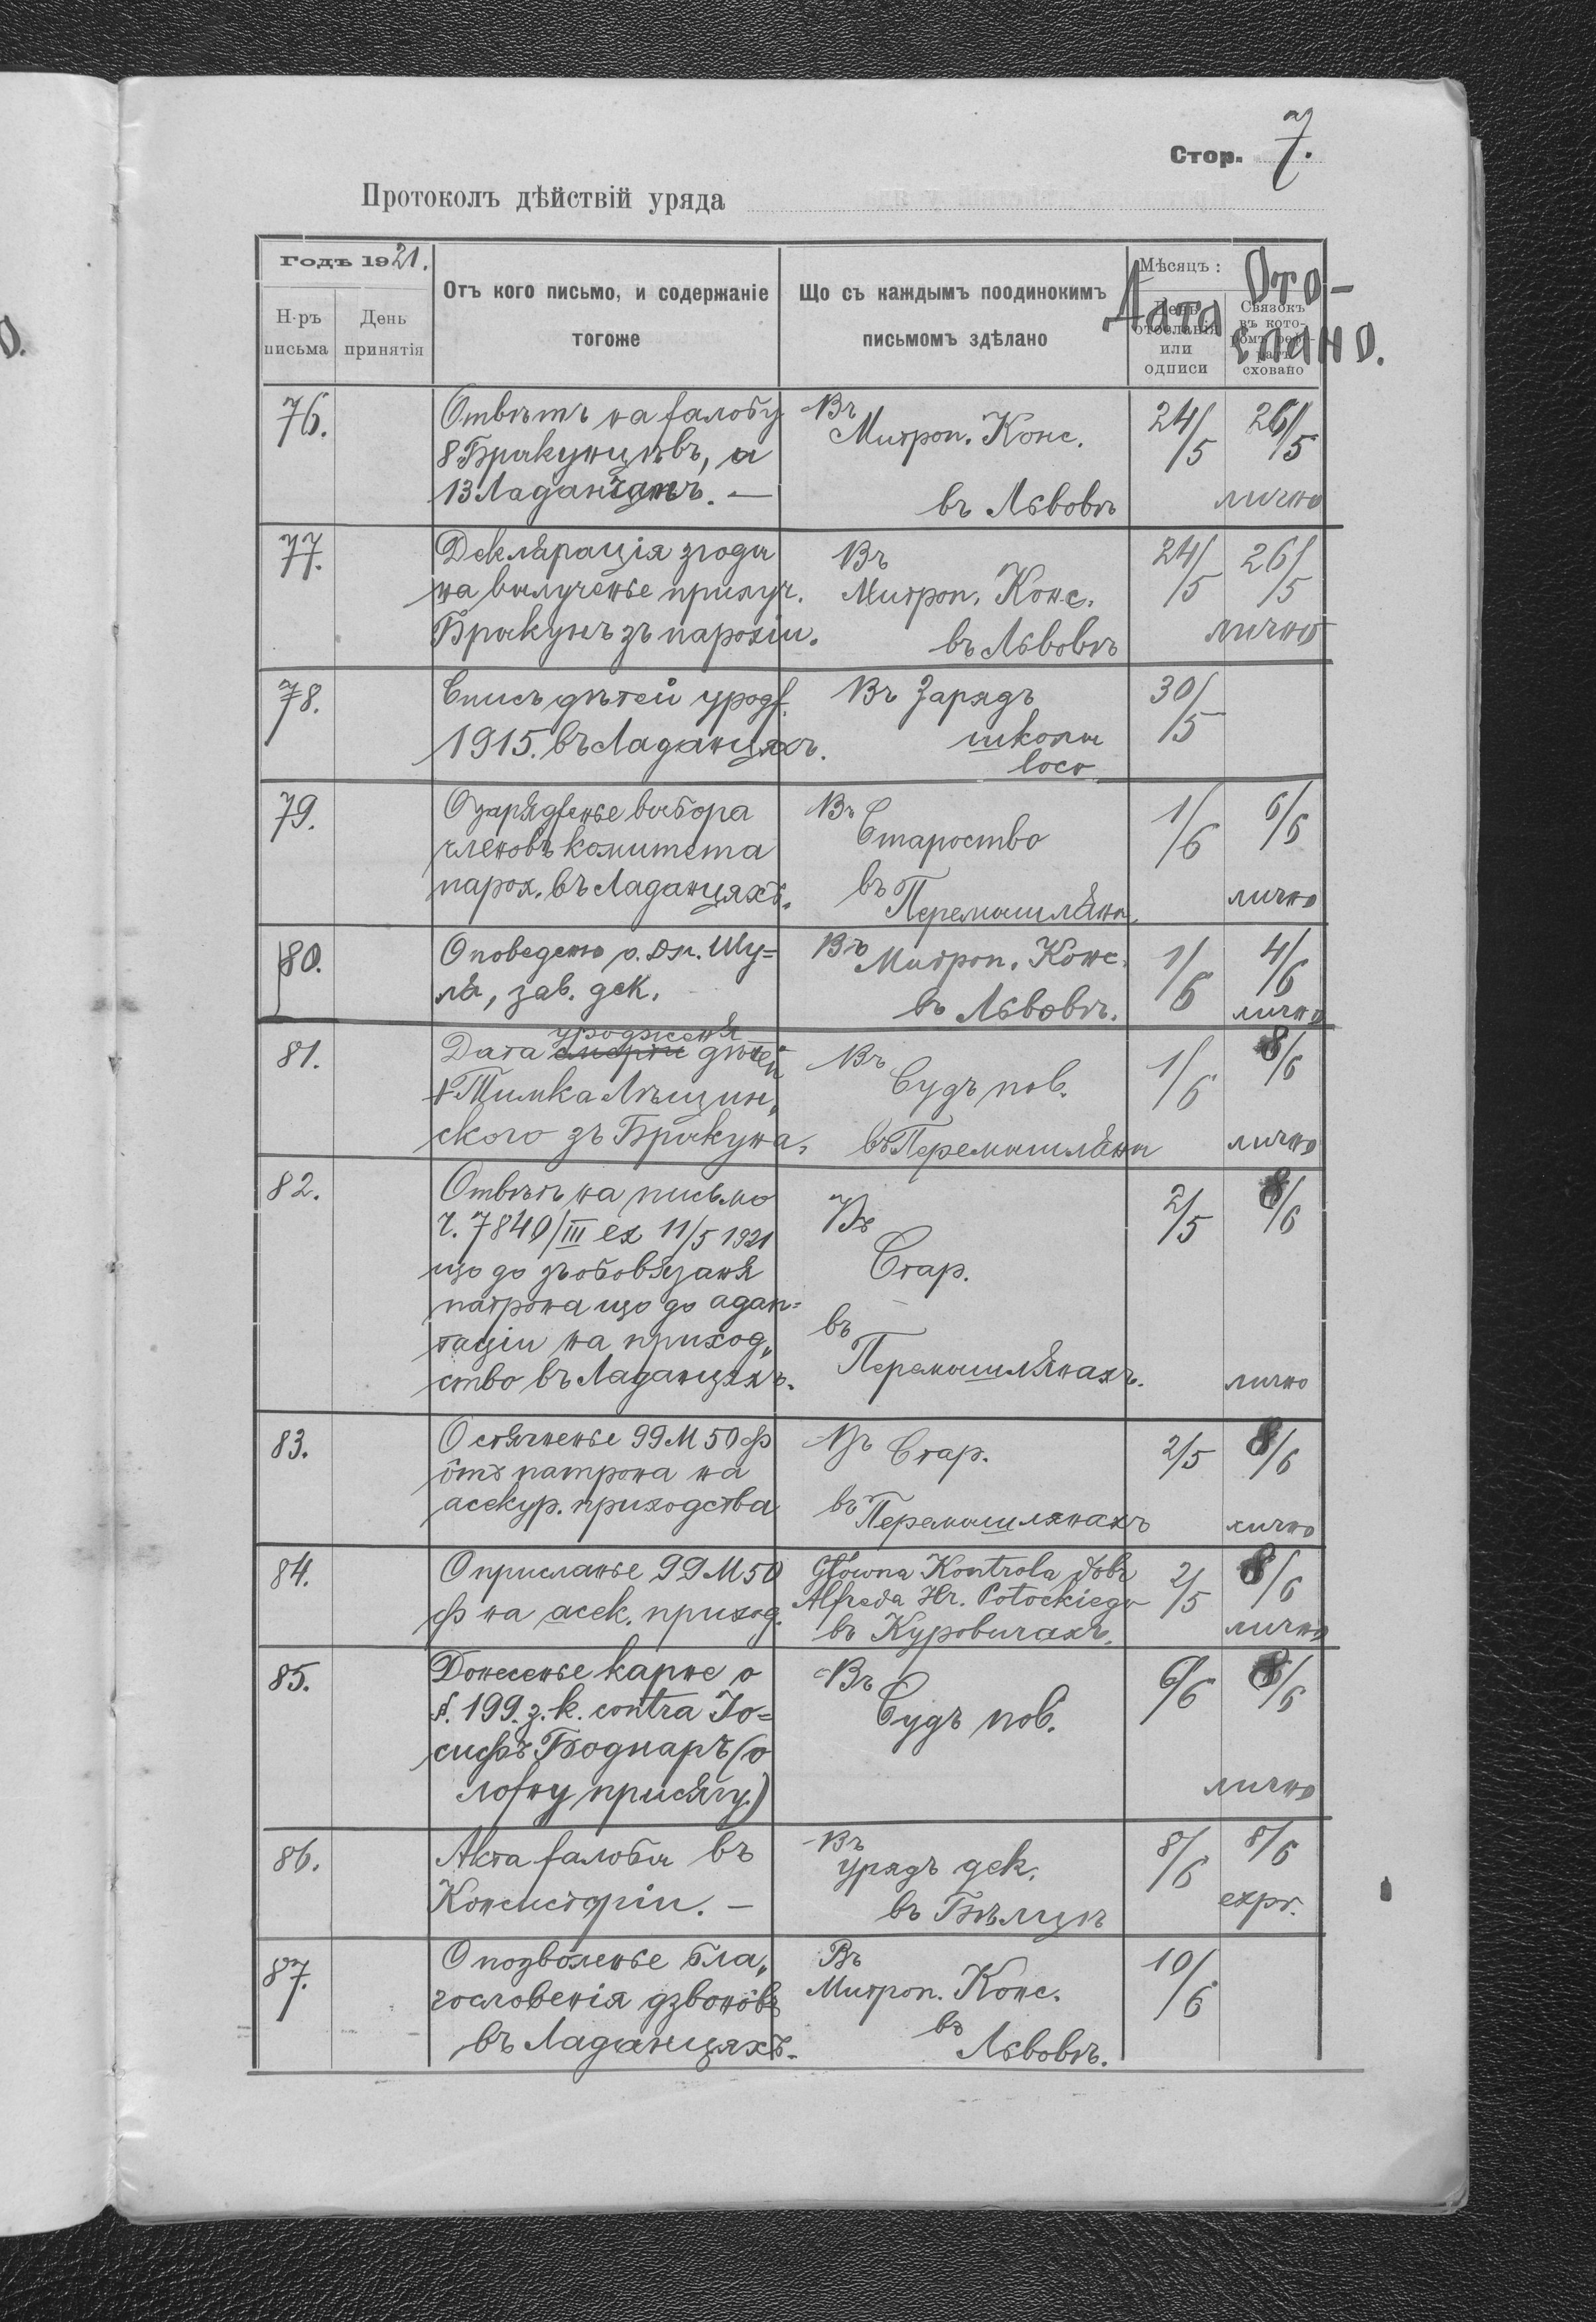 Стор. 7.
Протоколъ дѣйствій уряда
Годъ 1921.
Н-ръ письма
День принятія
Отъ кого письмо, и содержаніе тогоже
Що съ каждымъ поодинокимъ письмомъ здѣлано
Мѣсяцъ:
День отосланія или одписи
Связокъ въ кото-
сховано
Дата Ото-
слано.
76.
Отвѣтъ на жалобу
8 Брыкунцѣвъ, а
13 Ладанчанъ. —
Въ
Митроп. Конс.
въ Львовѣ
24/5
26/5
лично
77.
Деклярація згоды
на вылученье прилуч.
Брыкунъ зъ парохіи.
Въ
Митроп. Конс.
въ Львовѣ
24/5
26/5
лично
78.
Списъ дѣтей уродж.
1915. въ Ладанцяхъ.
Въ Зарядъ
школы
loco
30/5
79.
О зарядженье выбора
членовъ комитета
парох. въ Ладанцяхъ.
Въ
Староство
въ
Перемышляны.
1/6
6/6
лично
80.
О поведеню о. Дм. Шу=
ля, зав. дек.
Въ
Митроп. Конс.
въ Львовѣ.
1/6
4/6
лично
81.
уродженя
Дата смерти дѣтей
Тимка Лѣщин„
ского зъ Брыкуна.
Въ
Судъ пов.
въ Перемышляны
1/6
8/6
лично
82.
Отвѣтъ на письмо
ч. 7840/III ex 11/5 1921
що до зъобовязаня
патрона що до адап=
таціи на приход„
ство въ Ладанцяхъ.
Въ
Стар.
въ
Перемышлянахъ.
2/5
8/6
лично
83.
О стягненье 99 М 50 ф
ôтъ патрона на
асекур. приходства
Въ Стар.
въ Перемышлянахъ
2/5
8/6
лично
84.
О присланье 99 М 50
ф на асек. приход.
Główna Kontrola dóbr
Alfreda Hr. Potockiego
въ Куровичахъ.
2/5
8/6
лично
85.
Донесенье карне о
§. 199. з. к. contra Іо=
сифъ Боднаръ (о
ложну присягу.)
Въ
Судъ пов.
6/6
8/6
лично
86.
Акта жалобы въ
Консисторіи. —
Въ
Урядъ дек.
въ Бѣлцѣ
8/6
8/6
expr.
87.
О позволенье бла„
гословенія дзвонôвъ
въ Ладанцяхъ.
Въ
Митроп. Конс.
въ
Львовѣ.
10/6